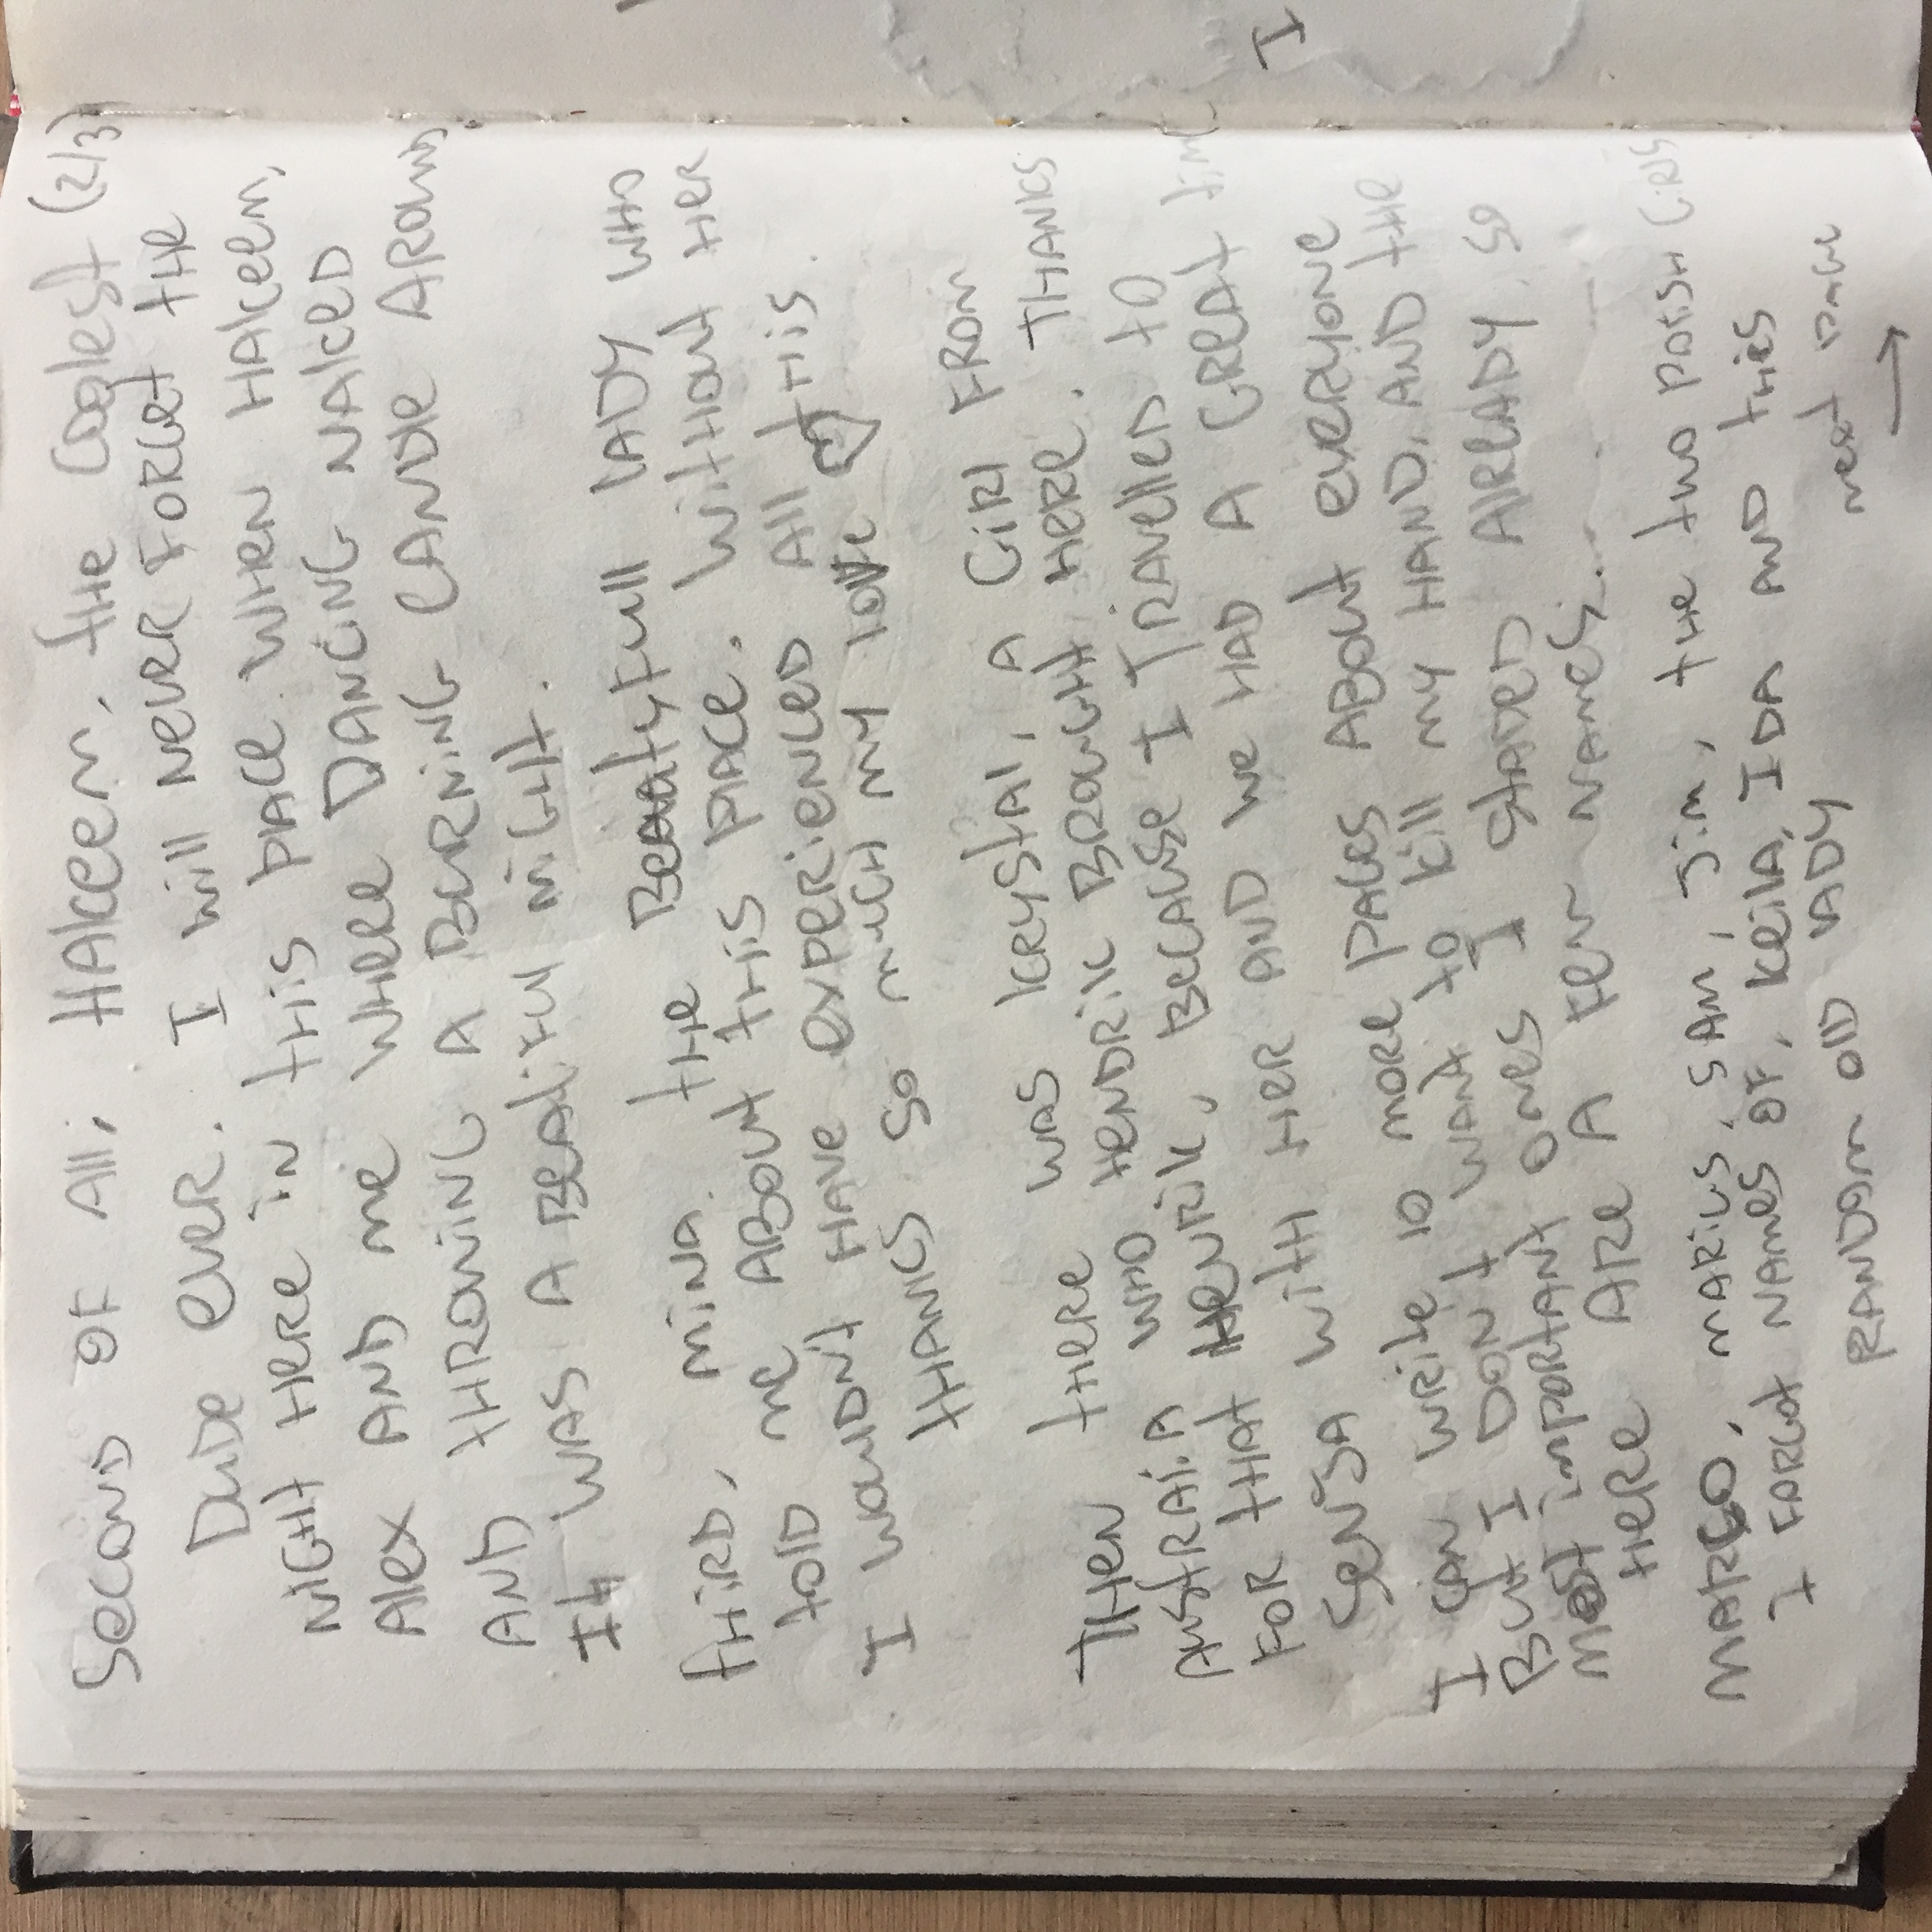 Second of All, HAkeem. the Coolest (2/3)
DuDe eveR. I will neveR FoRGet the
NiGHt HeRe iN tHis plAce. WHeN HAkeem,
Alex AND me WHeRe DANciNG NAkeD
AND tHRowiNG A BuRNiNG CANDle ARouND
It WAS A BeAutiful NiGHt.
tHiRD, miNA. tHe BeAutyfull lADy wHo
tolD me ABout tHis plAce. WitHout HeR
I woulDN't HAve expeRieNceD All tHis.
tHANKS so mucH my love
THeN tHeRe was kRystAl, A GiRl FRom
AustRAliA wHo HeNDRik BRouGHt HeRe. THANKS
FoR tHAt HeNRik, BecAuse I tRAvelleD to
SeNSA witH HeR AND we HAD A GReAt time
I CAN wRite 10 moRe pAGes ABout eveRyoNe
But I DoN't WANt to kill my HAND, AND tHe
most impoRtANt oNes I stAteD AlReADy. so
HeRe ARe A few NAmes....
mARGo, mARius, sAm, Jim, tHe two polisH GiRls
I FoRGot NAmes of, keilA, IDA AND tHis
RANDom olD lADy
next pAGe
→
I